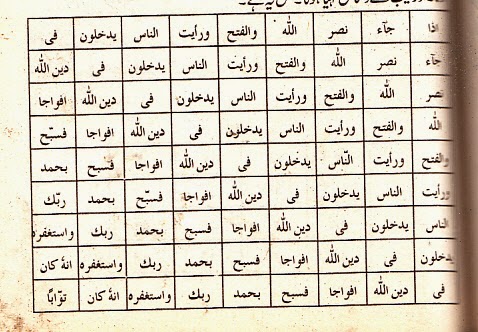 اذا جآء نصر الله والفتح ورأیت الناس یدخلون فی
جآء نصر الله والفتح ورأیت الناس یدخلون فی دین الله
نصر الله والفتح ورأیت الناس یدخلون فی دین الله افواجا
الله والفتح ورأیت الناس یدخلون فی دین الله افواجا فسبّح
والفتح ورأیت النّاس یدخلون فی دین الله افواجا فسبح بحمد
ورأیت الناس یدخلون فی دین الله افواجا فسبّح بحمد ربّك
الناس یدخلون فی دین الله افواجا فسبح بحمد ربك واستغفره
یدخلون فی دین الله افواجا فسبح بحمد ربك واستغفره انهٗ کان
فی دین الله افواجا فسبح بحمد ربك واستغفره انهٗ کان توّابًا